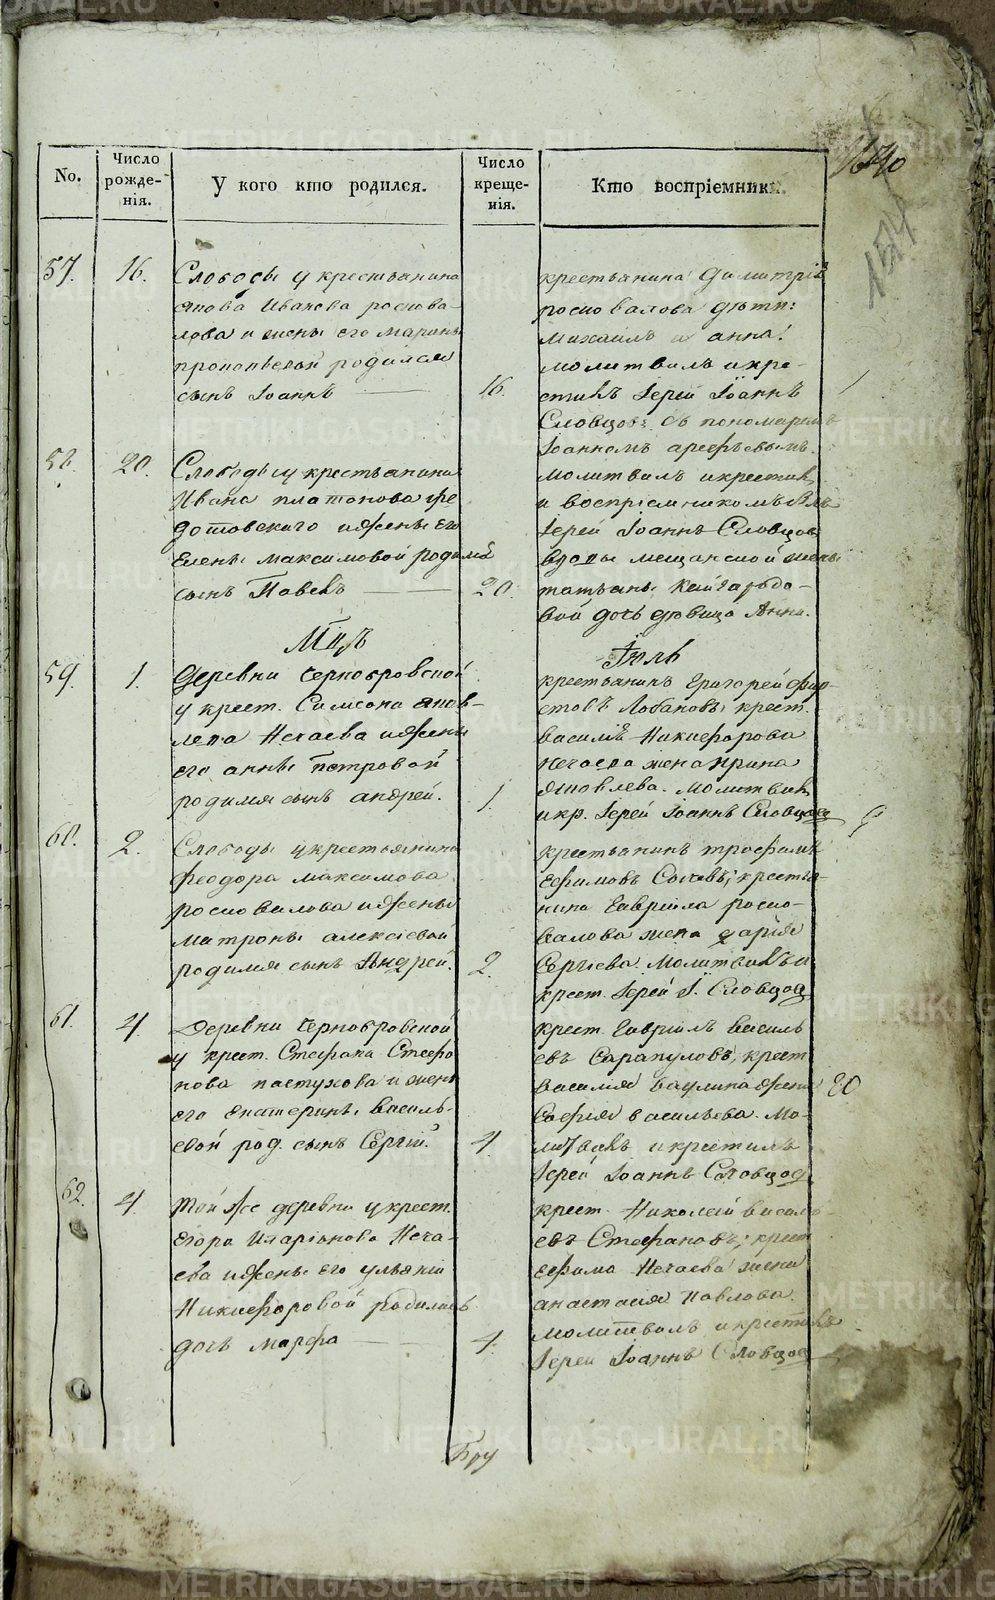 No.
Число рожденія.
У кого кто родился.
Число крещенія.
Кто воспріемники.
57.
16.
Слободы у крестьянина
Якова Иванова роснова-
лова и жены его марины
родился
сынъ Іоаннъ
16.
крестьянина Димитрія
росновалова дѣти:
Михаилъ и анна.
молитвилъ и кре-
стилъ Іерей Іоаннъ
Словцовъ съ пономаремъ
Іоанномъ арефьевымъ.
58.
20.
Слободы у крестьянина
Ивана платонова фе
дотовского и жены его
Елены максимовой родился
сынъ Павелъ
20.
молитвилъ и крестилъ
и воспріемникомъ былъ
Іерей Іоаннъ Словцовъ
вдовы мещанской жены
татьяны Кайгородо-
вой дочь дѣвица Анна.
Мцъ
Іюль
59.
1.
Деревни Чернобровской
у крест. Симеона яков-
лева Нечаева и жены
его анны петровой
родился сынъ андрей.
1.
крестьянинъ Григорей фир-
совъ Лобановъ; крест.
василія Никифорова
Нечаева жена Ирина
яковлева. Молитвилъ
и кр. Іерей Іоаннъ Словцовъ
60.
2.
Слободы у крестьянина
Феодора максимова
росновалова и жены
матроны алексіевой
родился сынъ Андрей.
2.
крестьянинъ трофимъ
Ефимовъ; крестья-
нина Гавріила росно-
валова жена дарія
Сергіева. Молитвилъ и
крест. Іерей І. Словцовъ
61.
4.
Деревни Чернобровской
у крест. Стефана Стефа
нова пастухова и жены
его Екатерины василь-
евой род. сынъ Сергій.
4.
крест. Гавріилъ василь
евъ Сарапуловъ; крест
василія ваулина жена
Софія васильева. Мо-
литвилъ и крестилъ
Іерей Іоаннъ Словцовъ
20
62.
4.
Той же деревни у крест.
Егора Иларіонова Неча-
ева и жены его ульяны
Никифоровой родилась
дочь марфа
4.
крест. Николай василь-
евъ Стефановъ; крест
Ефима Нечаева жена
анастасія павлова.
молитвилъ и крестилъ
Іерей Іоаннъ Словцовъ
Бру
METRIKI.GASO-URAL.RU